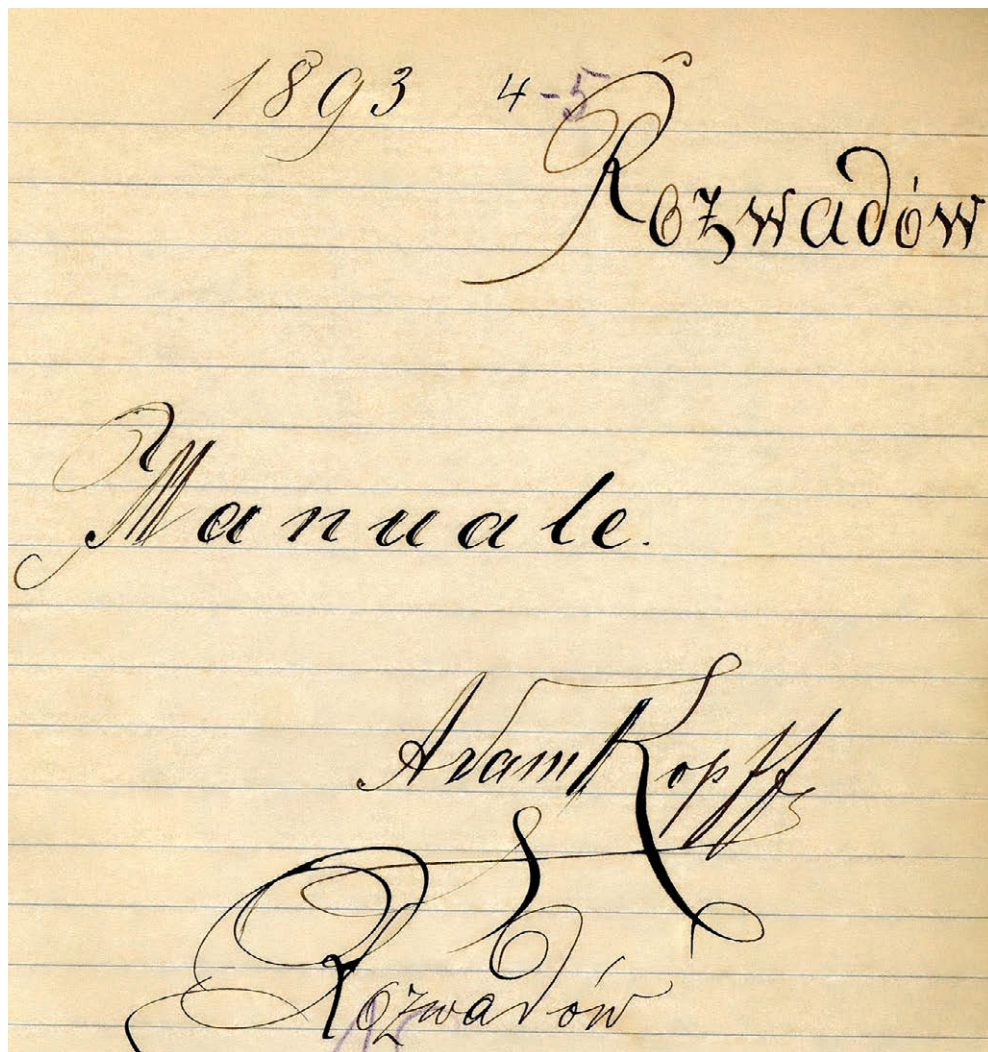 1893 4-5
Rozwadów
Manuale.
Adam Kopff
Rozwadów